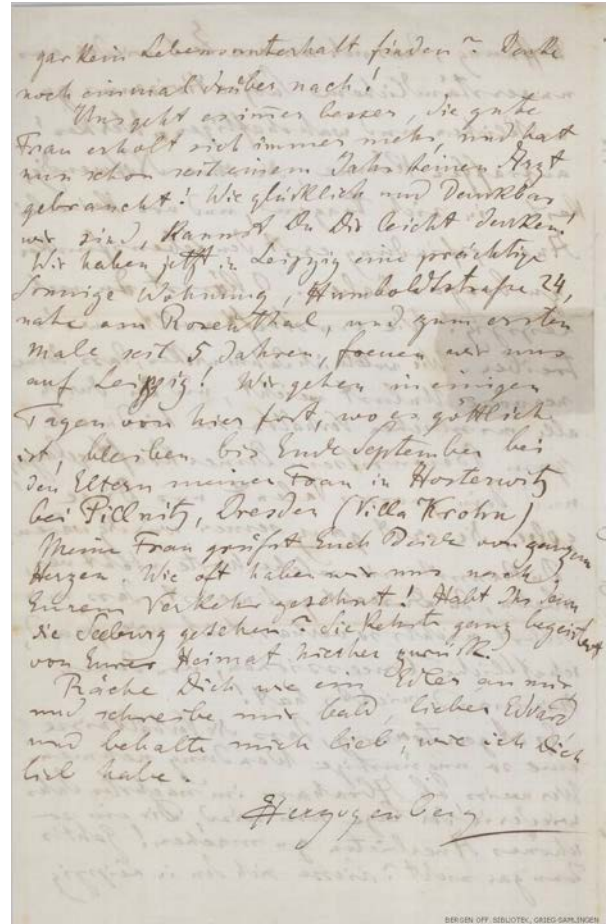 gar kein Lebensunterhalt finden? Denke
noch einmal drüber nach!
Uns geht es im̄er besser, die gute
Frau erholt sich immer mehr, und hat
nun schon seit einem Jahr keinen Arzt
gebraucht! Wie glücklich und dankbar
wir sind, kannst Du Dir leicht denken!
Wir haben jetzt in Leipzig eine prächtige
sonnige Wohnung, Humboldtstrafse 24,
nahe am Rosenthal, und zum ersten
Male seit 5 Jahren, freuen wir uns
auf Leipzig! Wir gehen in einigen
Tagen von hier fort, wo es göttlich
ist, bleiben bis Ende September bei
den Eltern meiner Frau in Hosterwitz
bei Pillnitz, Dresden (Villa Krohn)
Meine Frau grüfst Euch Beide von ganzem
Herzen. Wie oft haben wir uns nach
Eurem Verkehr gesehnt! Habt Ihr denn
die Seeburg gesehen? Sie kehrte ganz begeistert
von Eurer Heimat hieher zurück.
Räche Dich wie ein Edler an mir,
und schreibe mir bald, lieber Edvard
und behalte mich lieb, wie ich Dich
lieb habe.
Herzogenberg
BERGEN OFF. BIBLIOTEK, GRIEG-SAMLINGEN